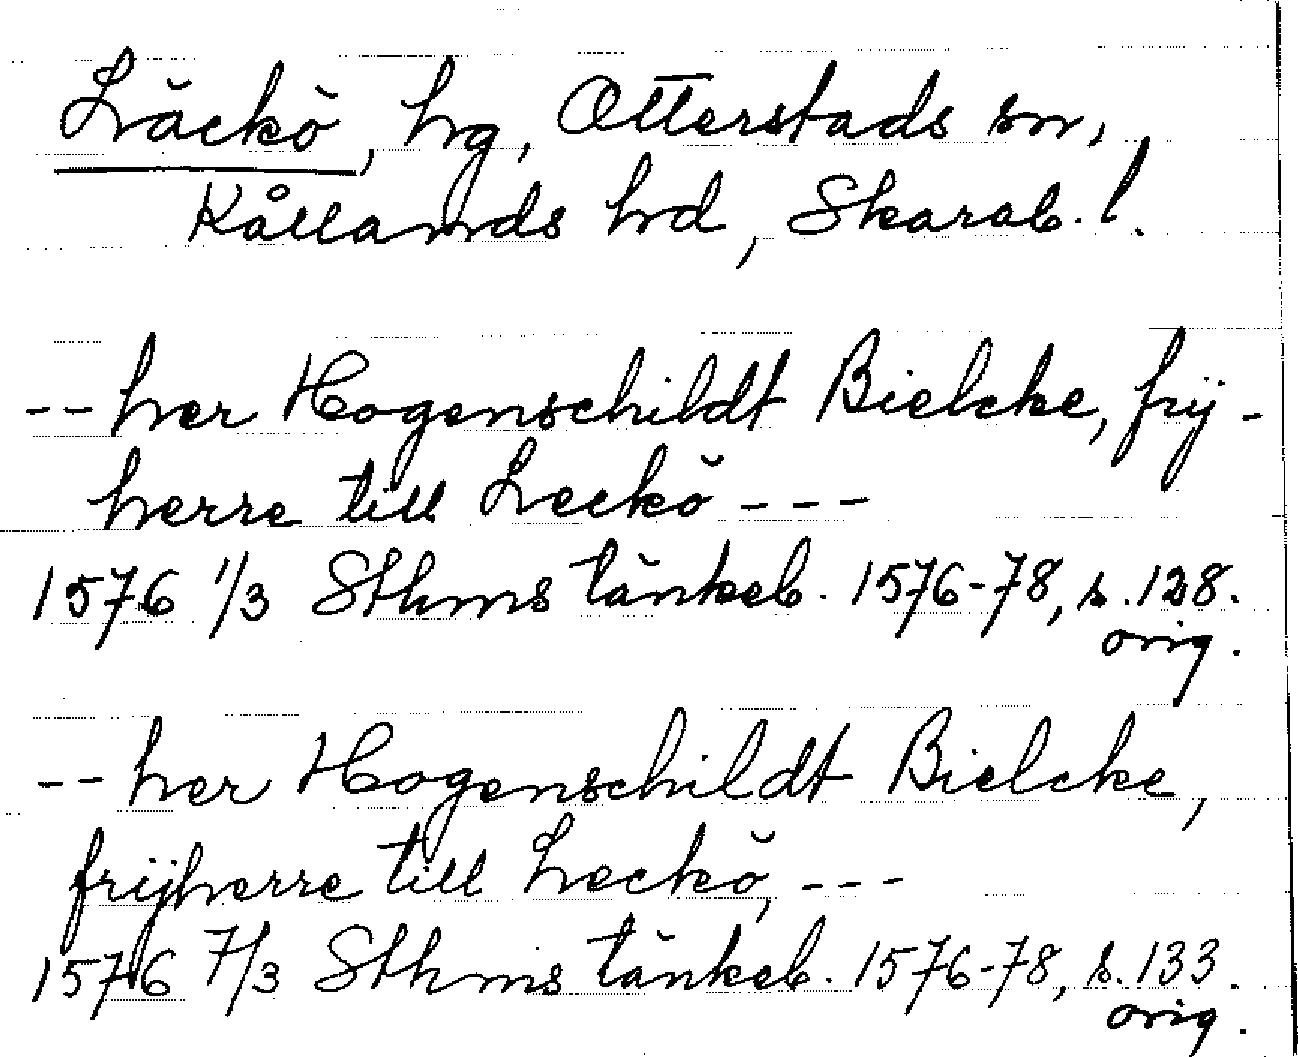 Läckö, hg, Otterstads sn,
Kållands hd, Skarab. l.
-- her Hogenschildt Bielcke, frij-
herre till Leckö ---
1576 1/3 Sthms tänkeb. 1576-78, s. 128.
orig.
-- her Hogenschildt Bielcke,
frijherre till Leckö, ---
1576 7/3 Sthms tänkeb. 1576-78, s. 133.
orig.